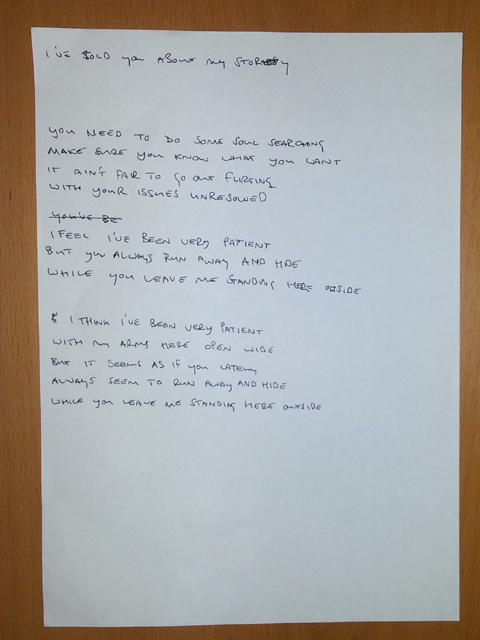 I'VE SOLD YOU ABOUT MY STORY
YOU NEED TO DO SOME SOUL SEARCHING
MAKE SURE YOU KNOW WHAT YOU WANT
IT AIN'T FAIR TO GO OUT FLIRTING
WITH YOUR ISSUES UNRESOLVED
YOU'VE BE
I FEEL I'VE BEEN VERY PATIENT
BUT YOU ALWAYS RUN AWAY AND HIDE
WHILE YOU LEAVE ME STANDING HERE OUTSIDE
I THINK I'VE BEEN VERY PATIENT
WITH MY ARMS HERE OPEN WIDE
BUT IT SEEMS AS IF YOU LATELY
ALWAYS SEEM TO RUN AWAY AND HIDE
WHILE YOU LEAVE ME STANDING HERE OUTSIDE